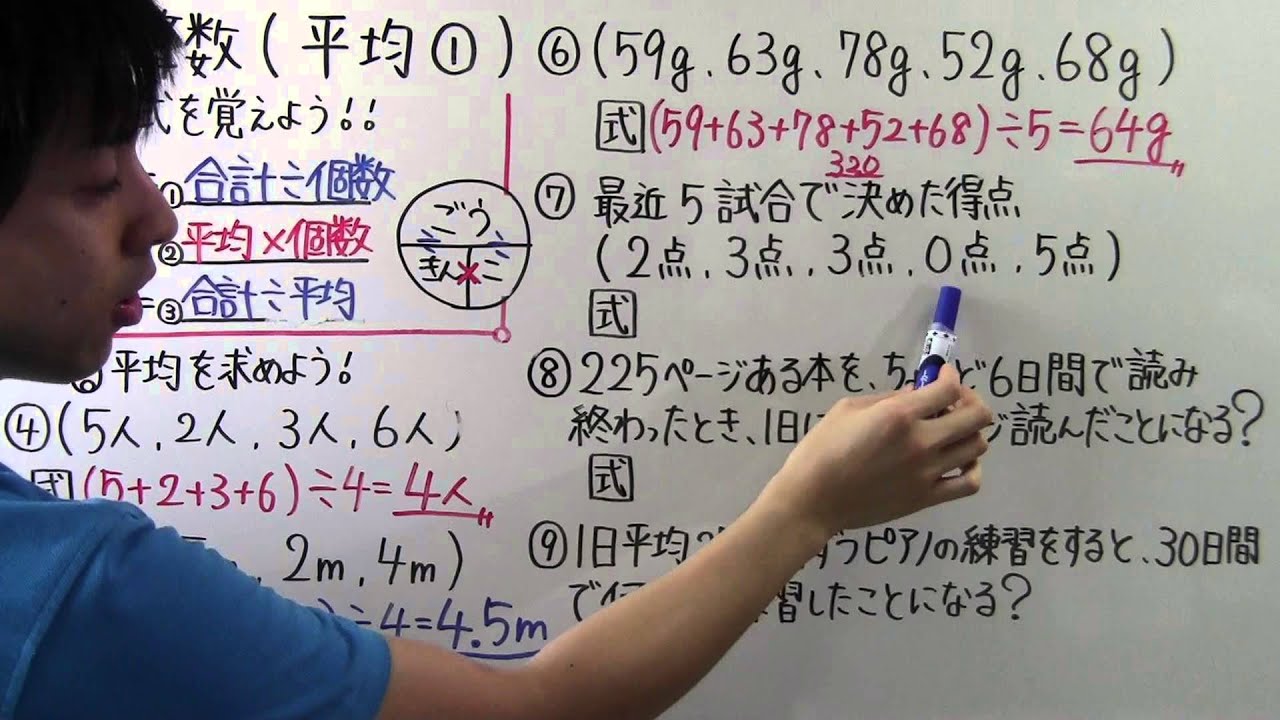 数(平均①)
式を覚えよう!!
①合計÷個数
②平均×個数
=③合計÷平均
ごう
きん×こ
平均を求めよう!
④(5人,2人,3人,6人)
式(5+2+3+6)÷4=4人
2m,4m)
÷4=4.5m
⑥(59g、63g、78g、52g、68g)
式(59+63+78+52+68)÷5=64g
320
⑦最近5試合で決めた得点
(2点,3点,3点,0点,5点)
式
⑧225ページある本を、ちょうど6日間で読み
終わったとき、1日に 読んだことになる?
式
⑨1日平均 ずつピアノの練習をすると、30日間
で 習したことになる?